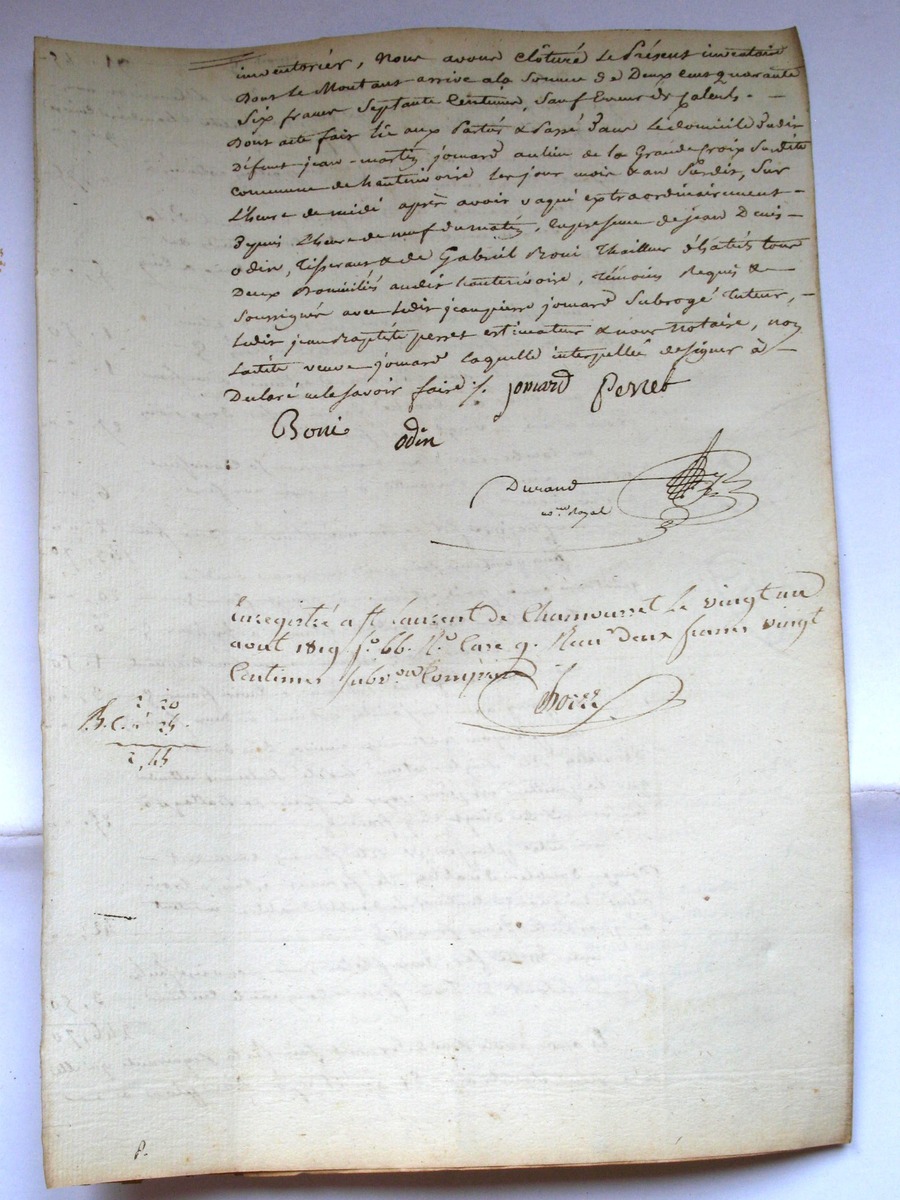 inventorier, Nous avons clôturé le Présent inventaire
Dont le Montant arrive a la Somme de Deux cent quarante
Six francs Septante Centimes, Sauf Erreur de Calculs. -
Dont acte fait lû aux Parties & Passé Dans le domicile Dudit
Défunt jean-martin jomard au lieu de la Grande Croix Susdite
Commune de hauterivoire les jour mois & an Susdits, Sur
L'heure de midi après avoir vaqué extraordinairement -
Depuis L'heure de neuf du matin, En présence de jean Denis -
odin, Tisserant & de Gabriël Boni Thailleur d'habits tous
Deux Domiciliés audit hauterivoire, témoins Requis & -
Soussignés avec Ledit jean pierre jomard Subrogé tuteur, -
Ledit jean Baptiste perret estimateur & nous Notaire, non
Ladite veuve jomard laquelle interpellée de signer à -
Declaré ne le Savoir faire ./. jomard Perret
Boni odin
Durand
no.re Royal
Enregistré a St Laurent de Chamousset le vingt un
aout 1819 f.o 66. R.o Case 9. Reçu deux francs vingt
Centimes Subv.on Comprise
2 20
25.
2,45
P.